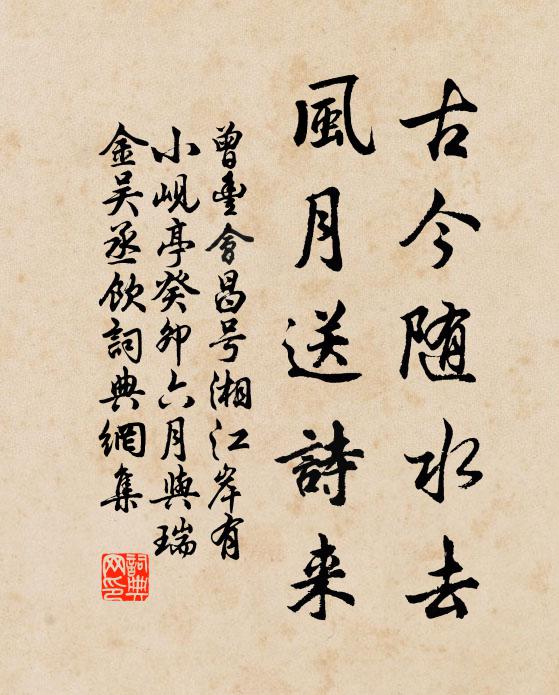 古今随水去
風月送詩来
曾豊會昌号湘江岸有
小峴亭癸卯六月與瑞
金吴丞飲詞典網集
詞典网印